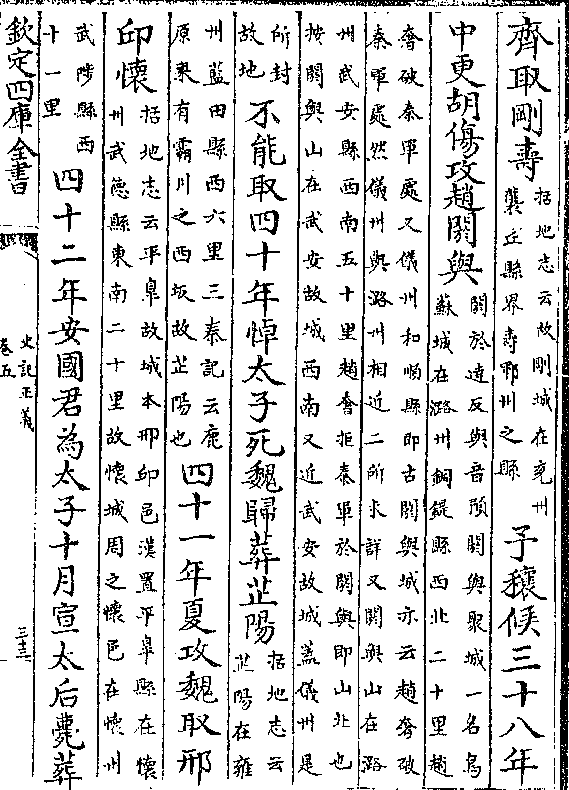 齊取剛壽
括地志云故剛城在兖州
龔丘縣界壽鄆州之縣
予穰侯三十八年
中更胡傷攻趙閼與
閼於達反與音預閼與聚城一名烏
蘇城在潞州銅鍉縣西北二十里趙
奢破秦軍處又儀州和順縣即古閼與城亦云趙奢破
秦軍處然儀州與潞州相近二所未詳又閼與山在潞
州武安縣西南五十里趙奢拒秦軍於閼與即山北也
按閼與山在武安故城西南又近武安故城蓋儀州是
所封
故地
不能取四十年悼太子死魏歸葬芷陽
括地志云
芷陽在雍
州藍田縣西六里三秦記云鹿
原東有霸川之西坂故芷陽也
四十一年夏攻魏取邢
邱懷
括地志云平臯故城本邢邱邑漢置平臯縣在懷
州武德縣東南二十里故懷城周之懷邑在懷州
武陟縣西
十一里
四十二年安國君為太子十月宣太后薨葬
欽定四庫全書
史記正義
卷五
三十三